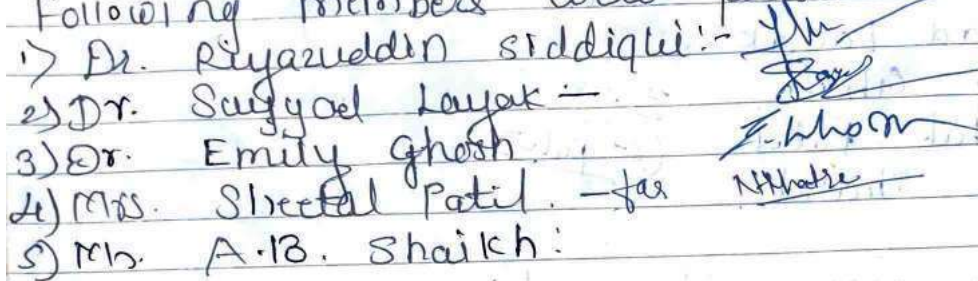 Following members
1) Dr. Riyazueddin siddiqui:-
2) Dr. Sayyad Layak -
3) Dr. Emily Ghosh.
4) Mrs. Sheetal Patil. - for
5) Mr. A.B. Shaikh: